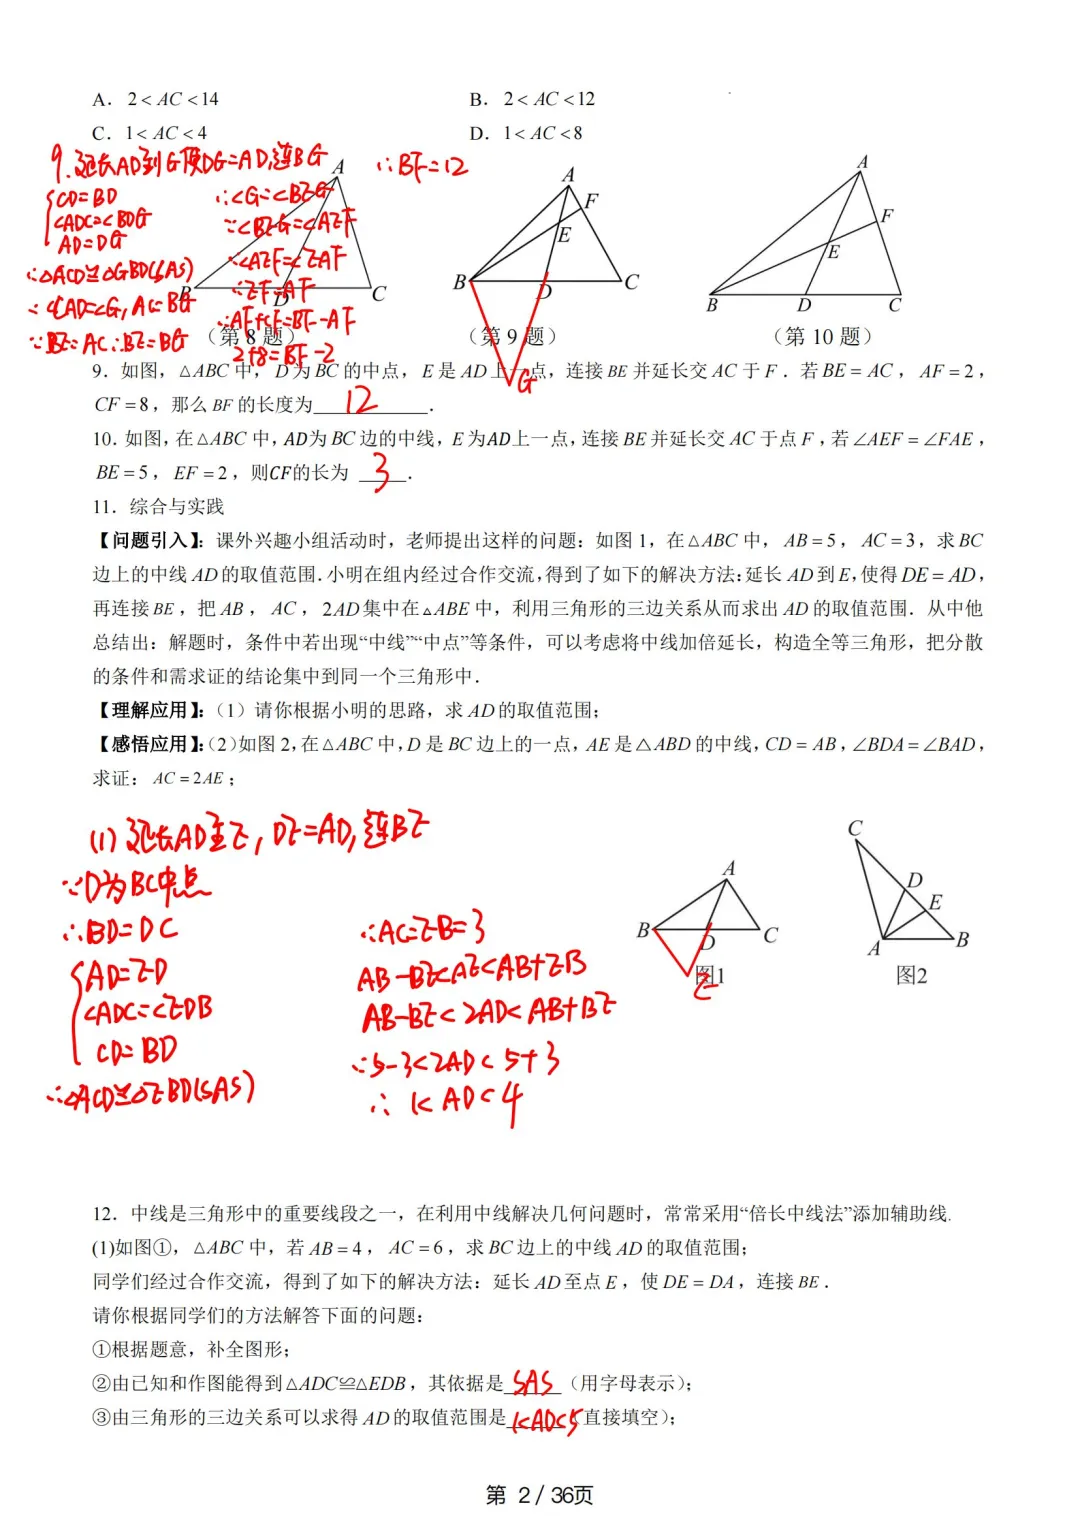 A. 2< AC <14
B. 2< AC <12
C. 1< AC <4
D. 1< AC <8
9.延长AD到G使DG=AD,连BG
CD=BD
∠ADC=∠BDG
AD=DG
∴△ACD≌△GBD(SAS)
∴∠CAD=∠G, AC=BG
∵BE=AC∴BE=BG
∴∠G=∠BEG
∵∠BEG=∠AEF
∴∠AEF=∠EAF
∴EF=AF
∴AF+CF=BF-AF
2+8=BF-2
∴BF=12
A
B
D
C
(第 8 题)
A
F
E
B
D
C
G
(第 9 题)
A
F
E
B
D
C
(第 10 题)
9. 如图，△ABC 中，D 为 BC 的中点，E 是 AD 上一点，连接 BE 并延长交 AC 于 F．若 BE = AC，AF = 2，
CF = 8，那么 BF 的长度为 12 ．
10. 如图,在△ABC 中,AD为 BC 边的中线,E 为AD上一点,连接 BE 并延长交 AC 于点 F,若∠AEF = ∠FAE，
BE = 5，EF = 2，则CF的长为 3 ．
11．综合与实践
【问题引入】：课外兴趣小组活动时，老师提出这样的问题：如图 1，在△ABC 中，AB = 5，AC = 3，求 BC
边上的中线 AD 的取值范围.小明在组内经过合作交流,得到了如下的解决方法:延长 AD 到 E,使得 DE = AD，
再连接 BE，把 AB，AC，2AD 集中在△ABE 中，利用三角形的三边关系从而求出 AD 的取值范围．从中他
总结出：解题时，条件中若出现“中线”“中点”等条件，可以考虑将中线加倍延长，构造全等三角形，把分散
的条件和需求证的结论集中到同一个三角形中．
【理解应用】：（1）请你根据小明的思路，求 AD 的取值范围；
【感悟应用】：（2）如图 2,在△ABC 中,D 是 BC 边上的一点，AE 是△ABD 的中线，CD = AB，∠BDA = ∠BAD，
求证：AC = 2AE；
(1)延长AD至E, DE=AD,连BE
∵D为BC中点
∴BD=DC
AD=ED
∠ADC=∠EDB
CD=BD
∴△ACD≌△EBD(SAS)
∴AC=EB=3
AB-BE<AE<AB+EB
AB-BE<2AD<AB+BE
∴5-3<2AD<5+3
∴1<AD<4
A
B
D
C
E
图1
C
D
E
A
B
图2
12．中线是三角形中的重要线段之一，在利用中线解决几何问题时，常常采用“倍长中线法”添加辅助线.
(1)如图①，△ABC 中，若 AB = 4，AC = 6，求 BC 边上的中线 AD 的取值范围；
同学们经过合作交流，得到了如下的解决方法：延长 AD 至点 E，使 DE = DA，连接 BE．
请你根据同学们的方法解答下面的问题：
①根据题意，补全图形；
②由已知和作图能得到△ADC≌△EDB，其依据是 SAS （用字母表示）；
③由三角形的三边关系可以求得 AD 的取值范围是 1<AD<5 （直接填空）；
第 2 / 36页